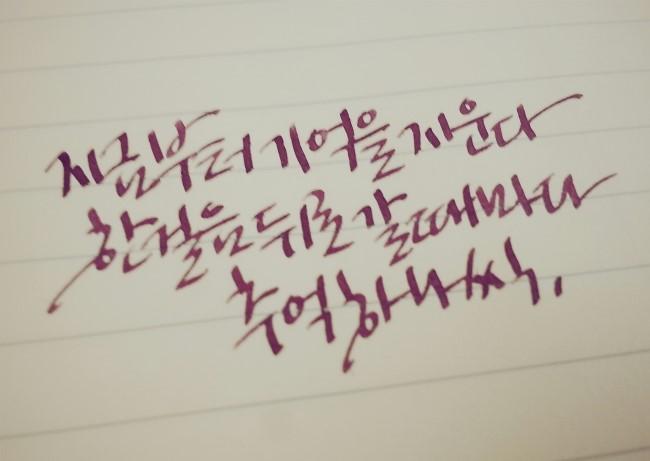 지금부터 기억을 지운다
한 걸음 뒤로 갈때마다
추억하나씩.